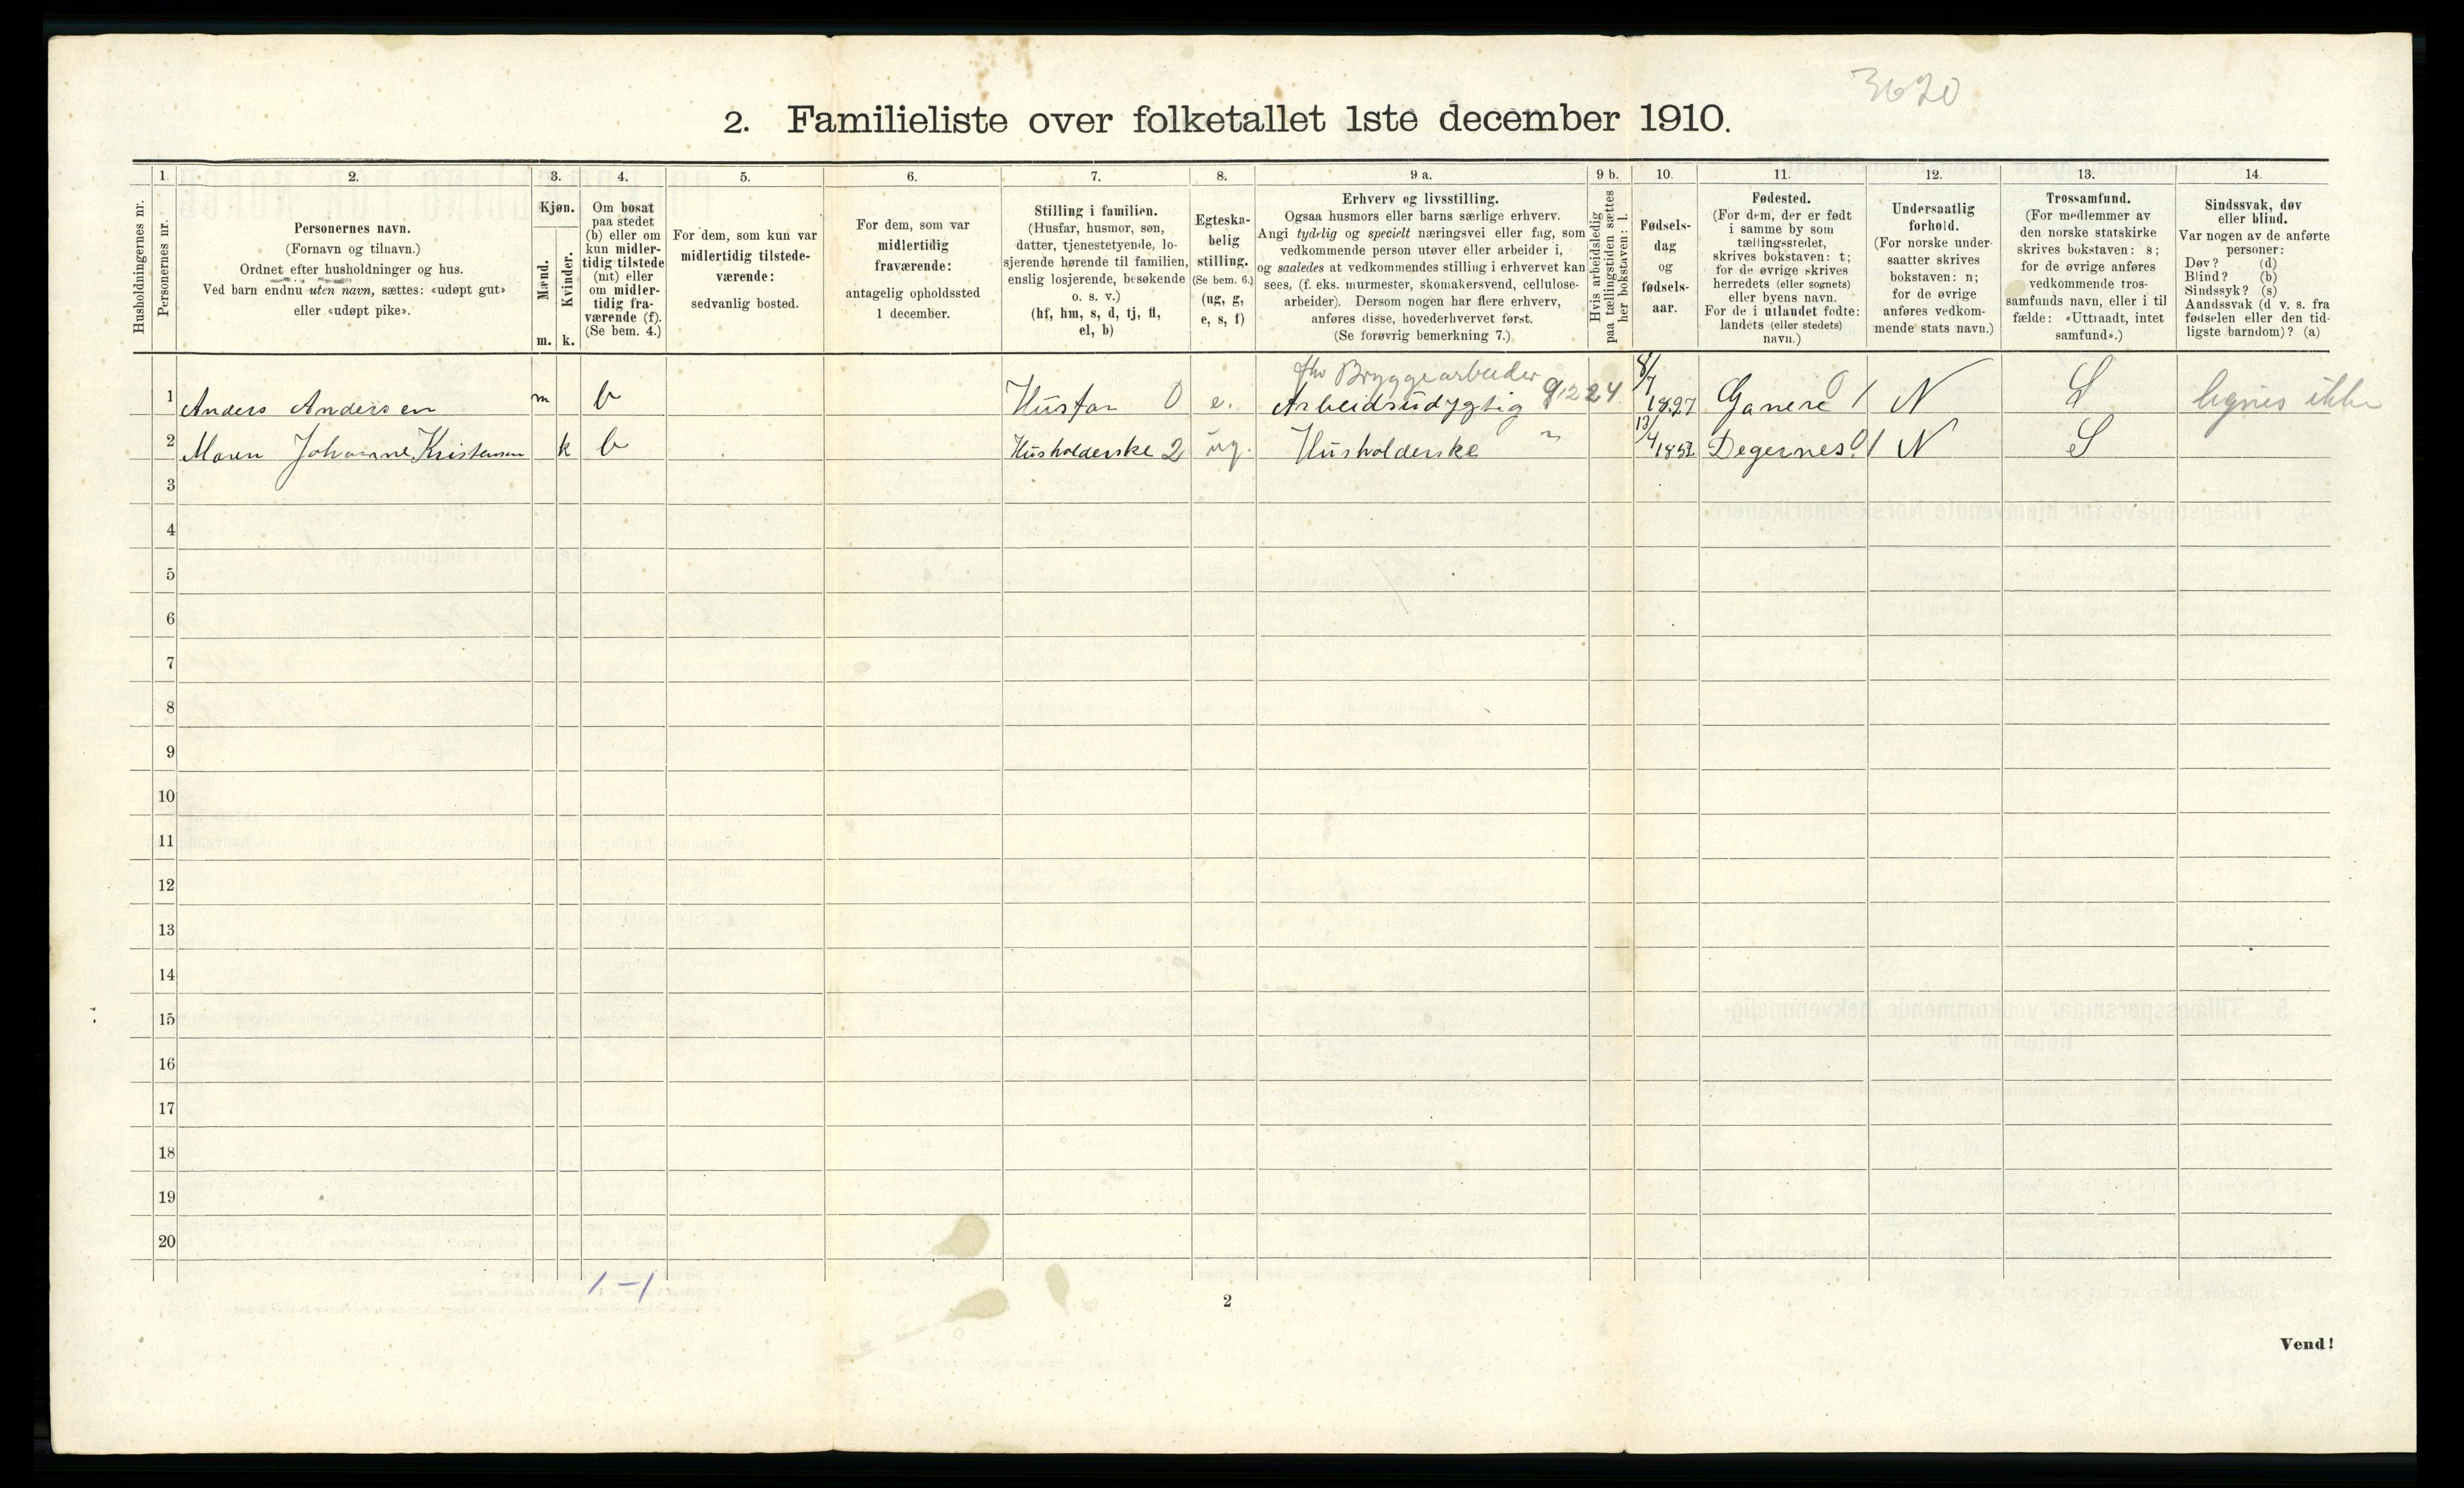 3620
2. Familieliste over folketallet 1ste december 1910.
Husholdningernes nr.
1.
Personernes nr.
2.
Personernes navn.
(Fornavn og tilnavn.)
Ordnet efter husholdninger og hus.
Ved barn endnu uten navn, sættes: «udøpt gut»
eller «udøpt pike».
3.
Kjøn.
Mænd.
Kvinder.
m. k.
4.
Om bosat
paa stedet
(b) eller om
kun midler-
tidig tilstede
(mt) eller
om midler-
tidig fra-
værende (f).
(Se bem. 4.)
5.
For dem, som kun var
midlertidig tilstede-
værende:
sedvanlig bosted.
6.
For dem, som var
midlertidig
fraværende:
antagelig opholdssted
1 december.
7.
Stilling i familien.
(Husfar, husmor, søn,
datter, tjenestetyende, lo-
sjerende hørende til familien,
enslig losjerende, besøkende
o. s. v.)
(hf, hm, s, d, tj, fl,
el, b)
8.
Egteska-
belig
stilling.
(Se bem. 6.)
(ug, g,
e, s, f)
9 a.
Erhverv og livsstilling.
Ogsaa husmors eller barns særlige erhverv.
Angi tydelig og specielt næringsvei eller fag, som
vedkommende person utøver eller arbeider i,
og saaledes at vedkommendes stilling i erhvervet kan
sees, (f. eks. murmester, skomakersvend, cellulose-
arbeider). Dersom nogen har flere erhverv,
anføres disse, hovederhvervet først.
(Se forøvrig bemerkning 7.)
9 b.
Hvis arbeidsledig
paa tællingstiden sættes
her bokstaven: l.
10.
Fødsels-
dag
og
fødsels-
aar.
11.
Fødested.
(For dem, der er født
i samme by som
tællingsstedet,
skrives bokstaven: t;
for de øvrige skrives
herredets (eller sognets)
eller byens navn.
For de i utlandet fødte:
landets (eller stedets)
navn.)
12.
Undersaatlig
forhold.
(For norske under-
saatter skrives
bokstaven: n;
for de øvrige
anføres vedkom-
mende stats navn.)
13.
Trossamfund.
(For medlemmer av
den norske statskirke
skrives bokstaven: s;
for de øvrige anføres
vedkommende tros-
samfunds navn, eller i til
fælde: «Uttraadt, intet
samfund».)
14.
Sindssvak, døv
eller blind.
Var nogen av de anførte
personer:
Døv? (d)
Blind? (b)
Sindssyk? (s)
Aandssvak (d. v. s. fra
fødselen eller den tid-
ligste barndom)? (a)
fhv Bryggearbeider 8/7
1 Anders Andersen m b Husfar 0 e. Arbeidsudygtig 91224 1827 N S lignes ikke
2 Maren Johanne Kristensen k b Husholderske 2 ug. Husholderske " 13/4 Degernes 01 N S
3
4
5
6
7
8
9
10
11
12
13
14
15
16
17
18
19
20
1-1
2
Vend!